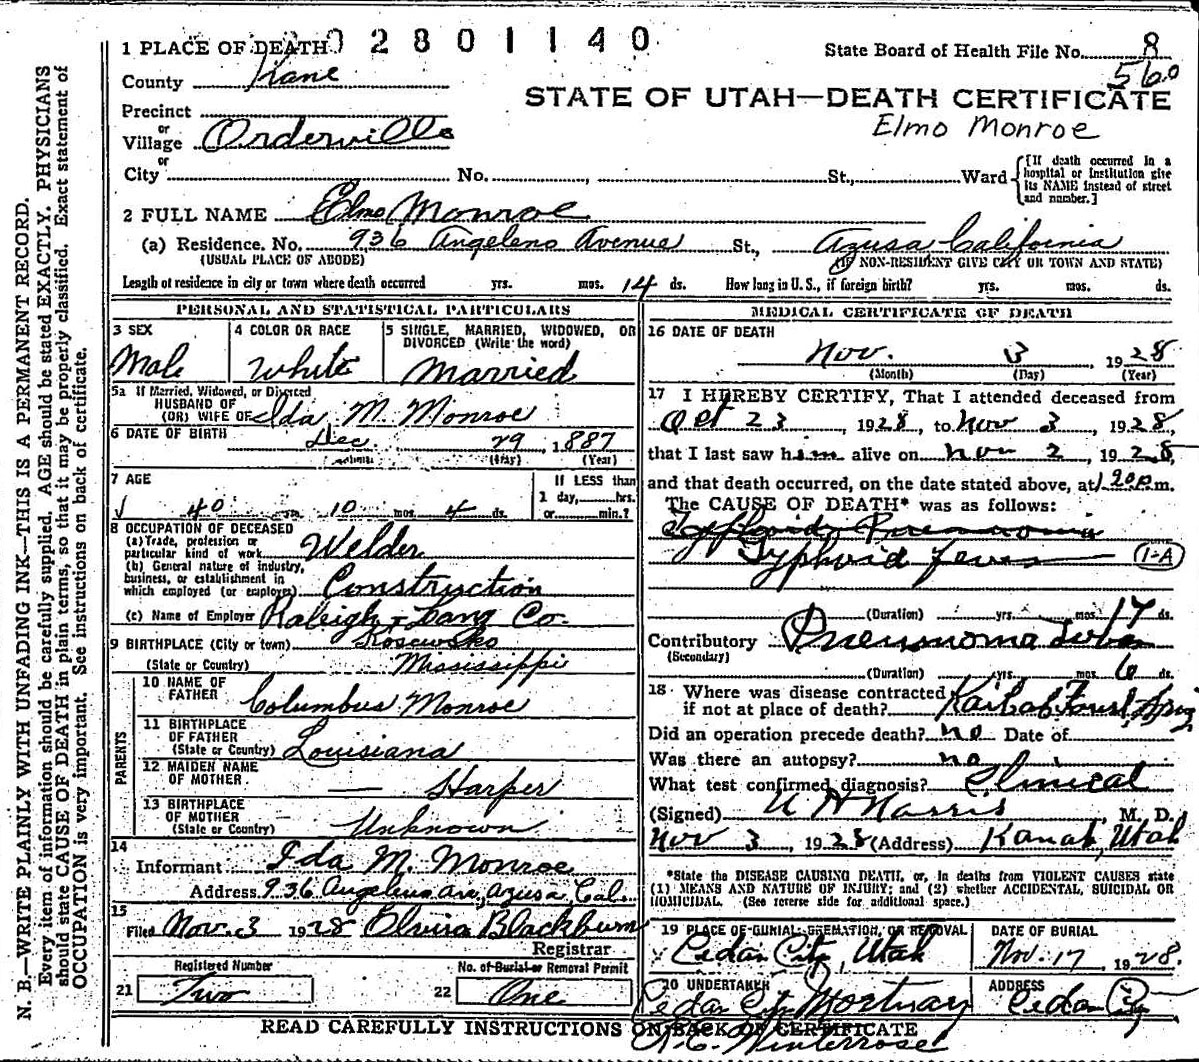 1 PLACE OF DEATH 0 2 8 0 1 1 4 0
State Board of Health File No. 8
County Kane
560
STATE OF UTAH—DEATH CERTIFICATE
Precinct
Elmo Monroe
or
Village Orderville
or
City No. , St., Ward
[If death occurred in a
hospital or institution give
its NAME instead of street
and number.]
2 FULL NAME Elmo Monroe
(a) Residence. No. 936 Angeleno Avenue St., Azusa California
(USUAL PLACE OF ABODE) (IF NON-RESIDENT GIVE CITY OR TOWN AND STATE)
Length of residence in city or town where death occurred yrs. mos. 14 ds. How long in U. S., if foreign birth? yrs. mos. ds.
PERSONAL AND STATISTICAL PARTICULARS
3 SEX
Male
4 COLOR OR RACE
White
5 SINGLE, MARRIED, WIDOWED, OR
DIVORCED (Write the word)
Married
5a If Married, Widowed, or Divorced
HUSBAND OF
(OR) WIFE OF Ida M. Monroe
6 DATE OF BIRTH Dec. 29 1887
(Month) (Day) (Year)
7 AGE
40 yrs. 10 mos. 4 ds.
If LESS than
1 day, hrs.
or min.?
8 OCCUPATION OF DECEASED
(a) Trade, profession or
particular kind of work Welder
(b) General nature of industry,
business, or establishment in
which employed (or employer) Construction
(c) Name of Employer Raleigh - Lang Co.
9 BIRTHPLACE (City or town) Kosciusko
(State or Country) Mississippi
PARENTS
10 NAME OF
FATHER Columbus Monroe
11 BIRTHPLACE
OF FATHER
(State or Country) Louisiana
12 MAIDEN NAME
OF MOTHER — Harper
13 BIRTHPLACE
OF MOTHER
(State or Country) Unknown
14
Informant Ida M. Monroe
Address 936 Angeleno Ave, Azusa, Cal.
15
Filed Nov. 3 1928 Elvira Blackburn
Registrar
Registered Number
21 Two
No. of Burial or Removal Permit
22 One
MEDICAL CERTIFICATE OF DEATH
16 DATE OF DEATH
Nov. 3 1928
(Month) (Day) (Year)
17 I HEREBY CERTIFY, That I attended deceased from
Oct 23, 1928, to Nov 3, 1928,
that I last saw him alive on Nov 2, 1928,
and that death occurred, on the date stated above, at 1 20 p m.
The CAUSE OF DEATH* was as follows:
Pneumonia
Typhoid fever 1-A
(Duration) yrs. mos. 17 ds.
Contributory Pneumonia Lobar
(Secondary)
(Duration) yrs. mos. 6 ds.
18 Where was disease contracted
if not at place of death? Kaibab Forest, Ariz
Did an operation precede death? no Date of
Was there an autopsy? no
What test confirmed diagnosis? Clinical
(Signed) Norris, M. D.
Nov 3 1928 (Address) Kanab, Utah
*State the DISEASE CAUSING DEATH, or, in deaths from VIOLENT CAUSES state
(1) MEANS AND NATURE OF INJURY; and (2) whether ACCIDENTAL, SUICIDAL OR
HOMICIDAL. (See reverse side for additional space.)
19 PLACE OF BURIAL, CREMATION, OR REMOVAL
Cedar City, Utah
DATE OF BURIAL
Nov. 17, 1928.
20 UNDERTAKER
Cedar City Mortuary
ADDRESS
Cedar City
Winterrose
READ CAREFULLY INSTRUCTIONS ON BACK OF CERTIFICATE
N. B.—WRITE PLAINLY WITH UNFADING INK—THIS IS A PERMANENT RECORD.
Every item of information should be carefully supplied. AGE should be stated EXACTLY. PHYSICIANS
should state CAUSE OF DEATH in plain terms, so that it may be properly classified. Exact statement of
OCCUPATION is very important. See instructions on back of certificate.